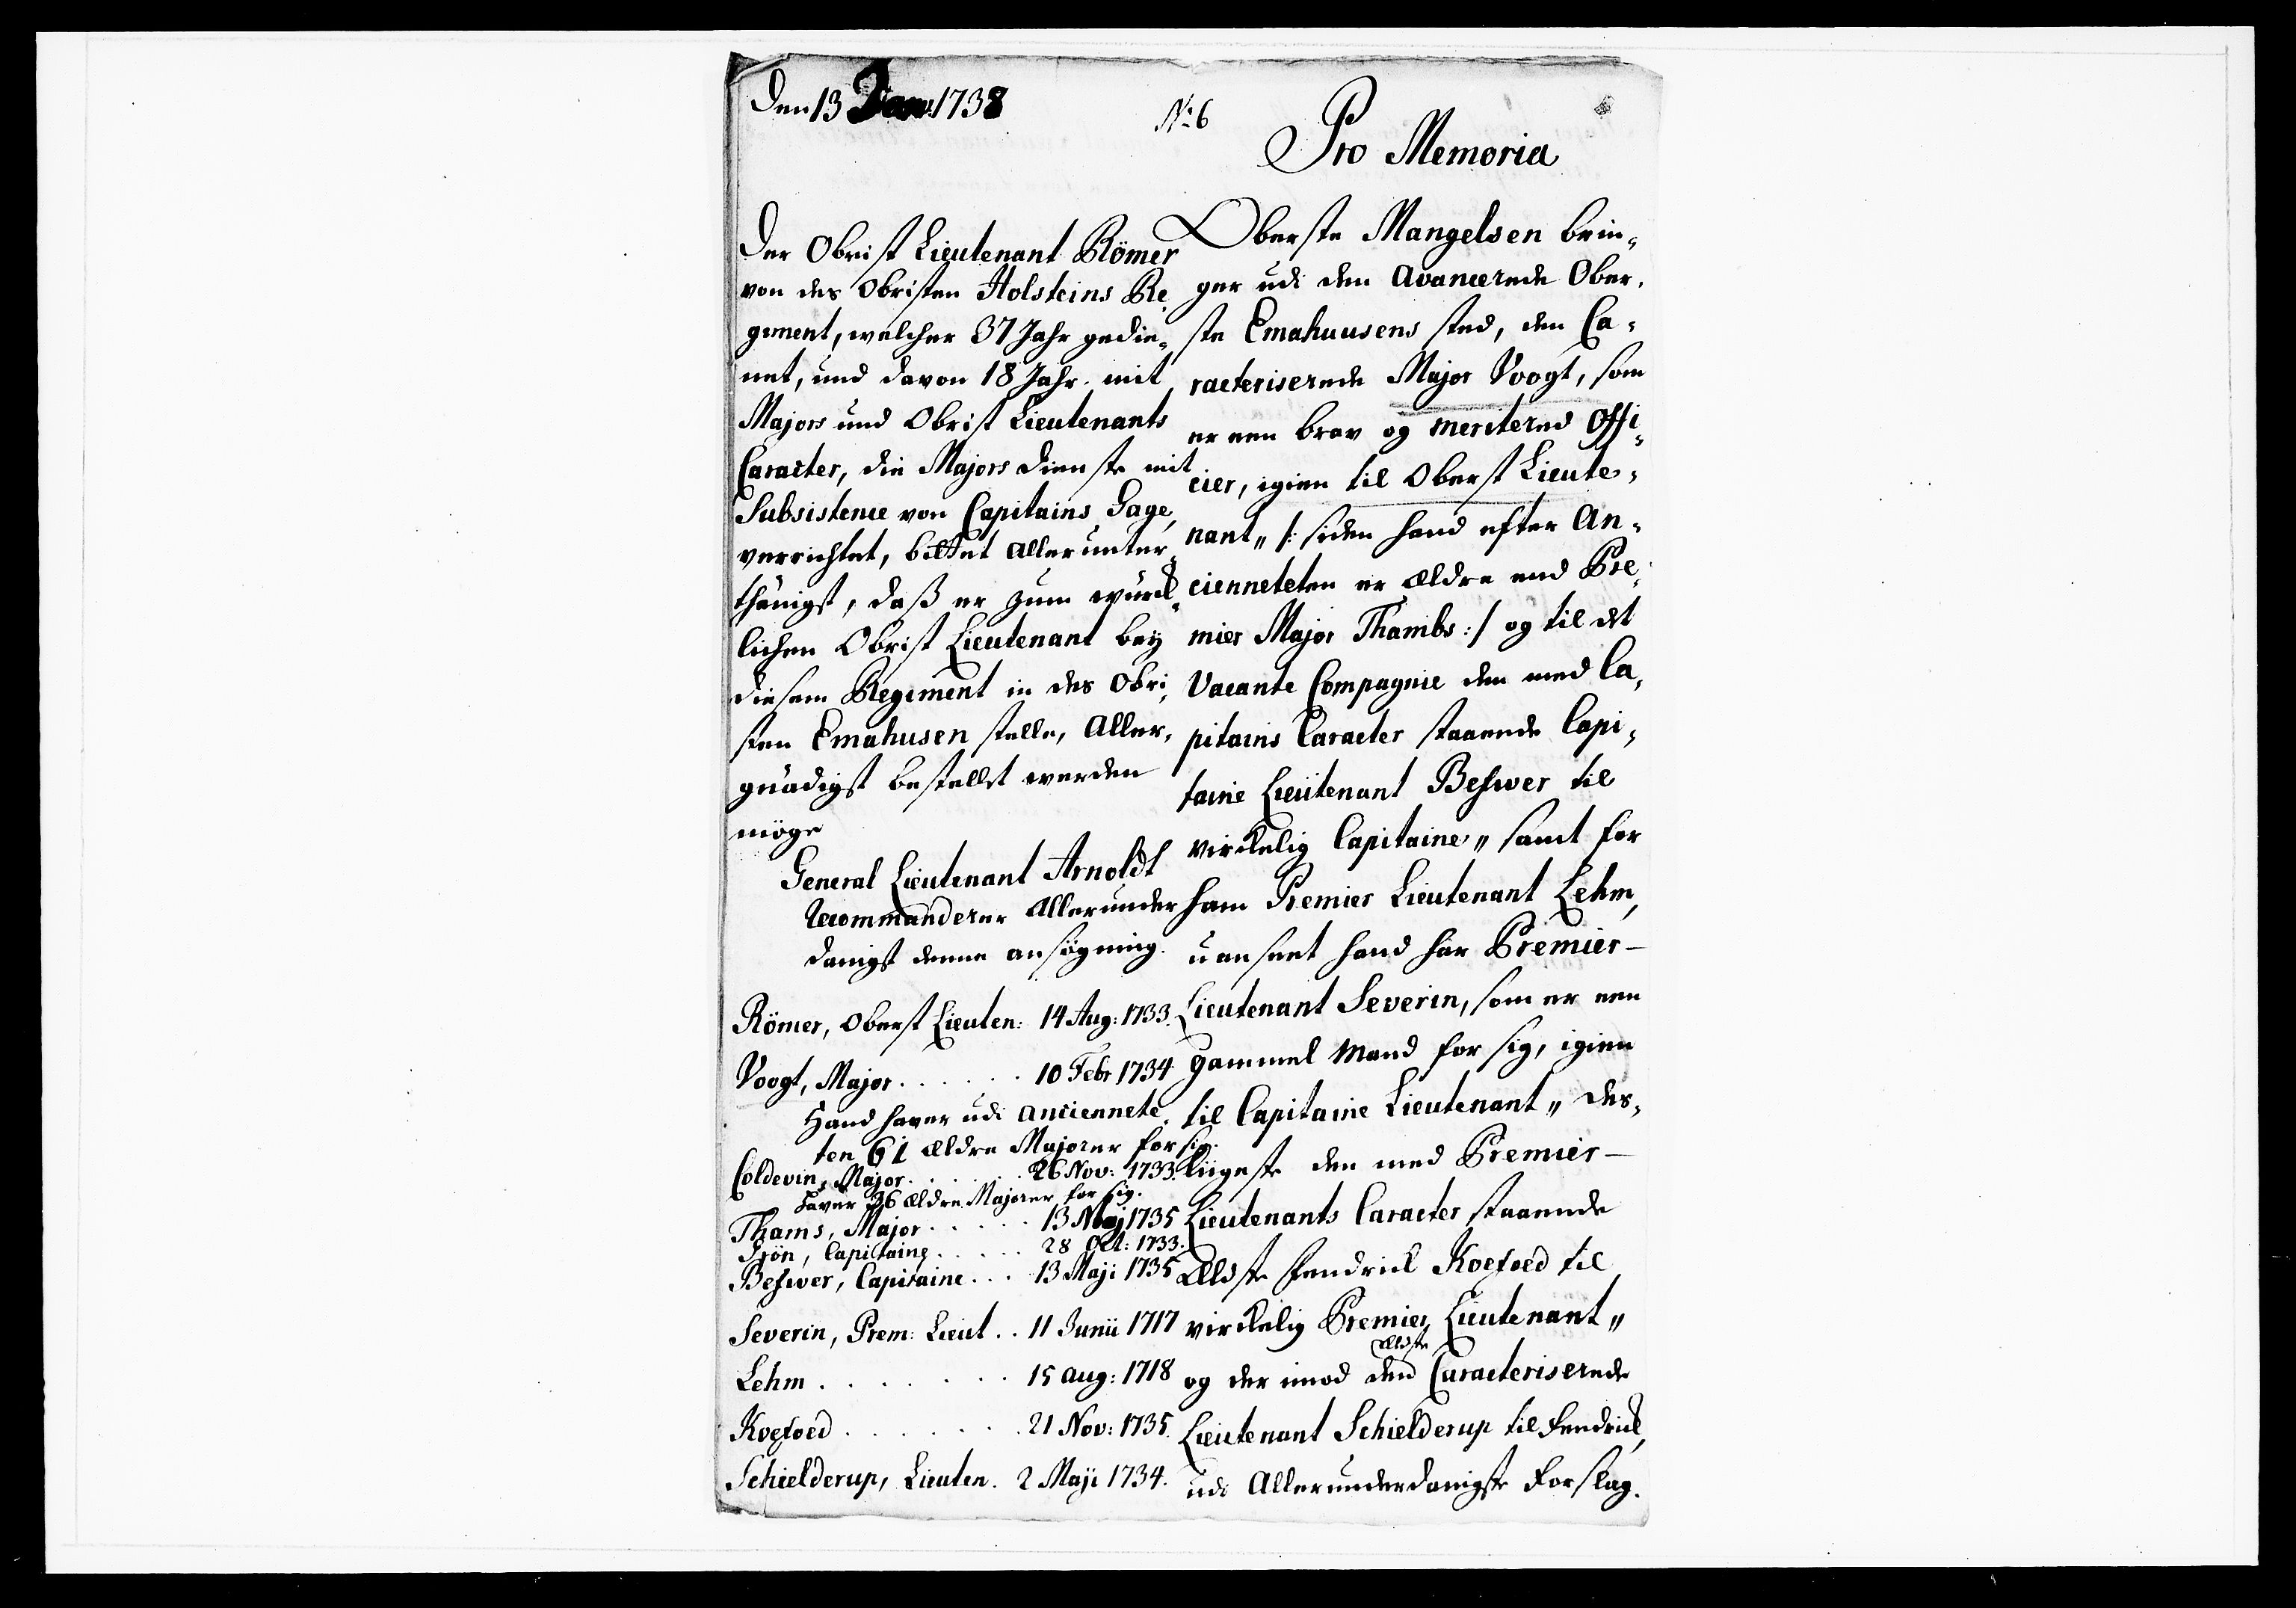 Den 13 Janv: 1738
No: 6
Pro Memoria
Der Obrist Lieutenant Römer
von des Obristen Holsteins Re¬
giment, welcher 37 Jahr gedie¬
net, und davon 18 Jahr mit
Majors und Obrist Lieutenants
Caracter, die Majors Dienste mit
Subsistence von Capitains Gage,
verrichtet, bittet allerunter¬
thänigst, daß er zum würck¬
lichen Obrist Lieutenant bey
diesem Regiment in des Obri¬
sten Emahusen stelle, Aller¬
gnädigst bestellet werden
möge
General Lieutenant Arnoldt
Recommanderer Allerunder
danigst denne ansøgning.
Römer, Oberst Lieuten: 14 Aug: 1733.
Voogt, Major . . . . . . 10 Febr 1734
Hand haver udi anciennete¬
ten 61 ældre Majorer for sig.
Coldevin, Major . . . . . 26 Nov: 1733.
Haver 36 ældre Majorer for sig.
Thams, Major . . . . . 13 Maj 1735
Frön, Capitaine . . . . . 28 Oct: 1733.
Beswer, Capitaine . . . 13 Maji 1735
Severin, Prem: Lieut . . 11 Junii 1717
Lehm . . . . . . . 15 aug: 1718
Koefoed . . . . . . . 21 Nov: 1735.
Schielderup, Lieuten. 2 Maji 1734.
Oberste Mangelsen brin¬
ger udi den Avancerede Ober¬
ste Emahuusens sted, den Ca¬
racteriserede Major Voogt, som
er een brav og meritered Offi¬
cier, igien til Oberst Lieute¬
nant „ /: siden hand efter An¬
cienneteten er ældre end Pre¬
mier Major Thambs :/ og til det
Vacante Compagnie den med Ca¬
pitains Caracter staaende Capi¬
taine Lieutenant Beswer til
virckelig Capitaine „ samt for
ham Premier Lieutenant Lehm,
uanseet hand har Premier-
Lieutenant Severin, som er een
gammel Mand for sig, igien
til Capitaine Lieutenant „ des¬
liigeste den med Premier-
Lieutenants Caracter staaende
Ældste Fendrick Koefoed til
virckelig Premier Lieutenant „
og der imod den ældste Caracteriserede
Lieutenant Schielderup til Fendrick,
udi Allerunderdanigste Forslag.